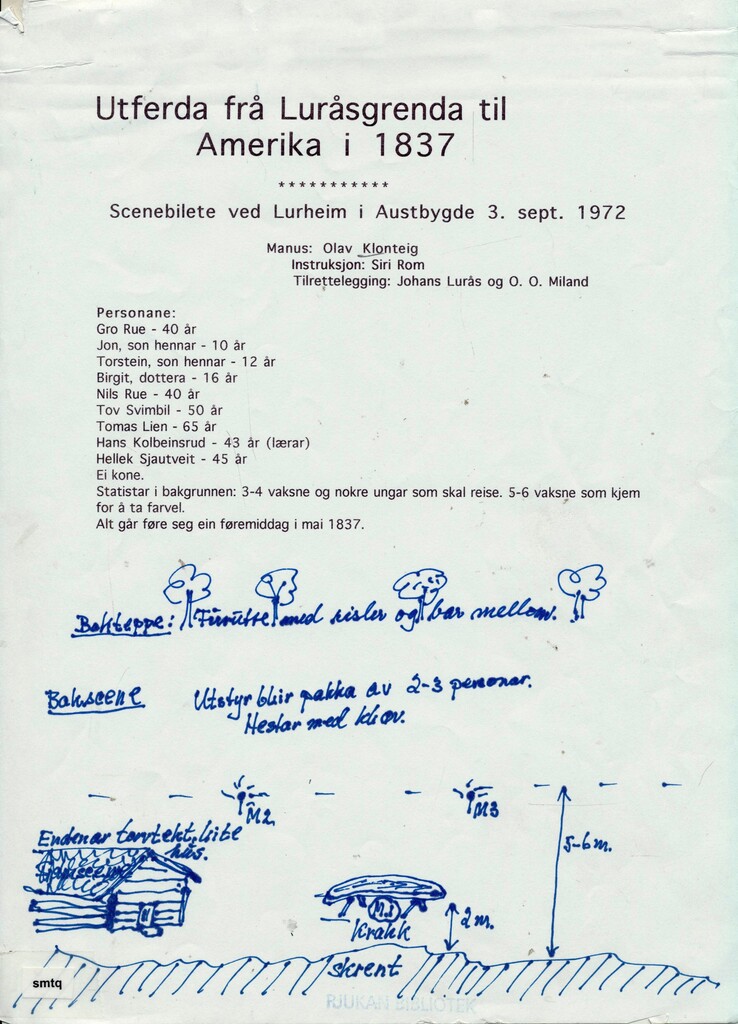 Utferda frå Luråsgrenda til
Amerika i 1837
***********
Scenebilete ved Lurheim i Austbygde 3. sept. 1972
Manus: Olav Klonteig
Instruksjon: Siri Rom
Tilrettelegging: Johans Lurås og O. O. Miland
Personane:
Gro Rue - 40 år
Jon, son hennar - 10 år
Torstein, son hennar - 12 år
Birgit, dottera - 16 år
Nils Rue - 40 år
Tov Svimbil - 50 år
Tomas Lien - 65 år
Hans Kolbeinsrud - 43 år (lærar)
Hellek Sjautveit - 45 år
Ei kone.
Statistar i bakgrunnen: 3-4 vaksne og nokre ungar som skal reise. 5-6 vaksne som kjem
for å ta farvel.
Alt går føre seg ein føremiddag i mai 1837.
Bakteppe: med risler og bar mellom.
Bakscene Utstyr blir pakka av 2-3 personar.
Hestar med kløv.
M2 M3
Endenar torvtekt, lite
hus.
5-6 m.
M1
2 m.
Krakk
skrent
smtq
RJUKAN BIBLIOTEK